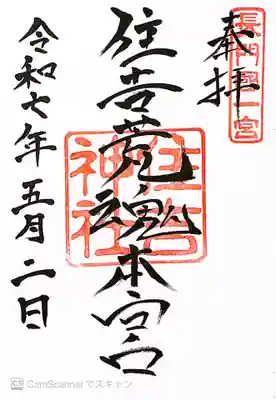 長門國一宮
奉拝
住吉荒魂本宮
住吉
神社
令和七年五月二日
CS CamScannerでスキャン